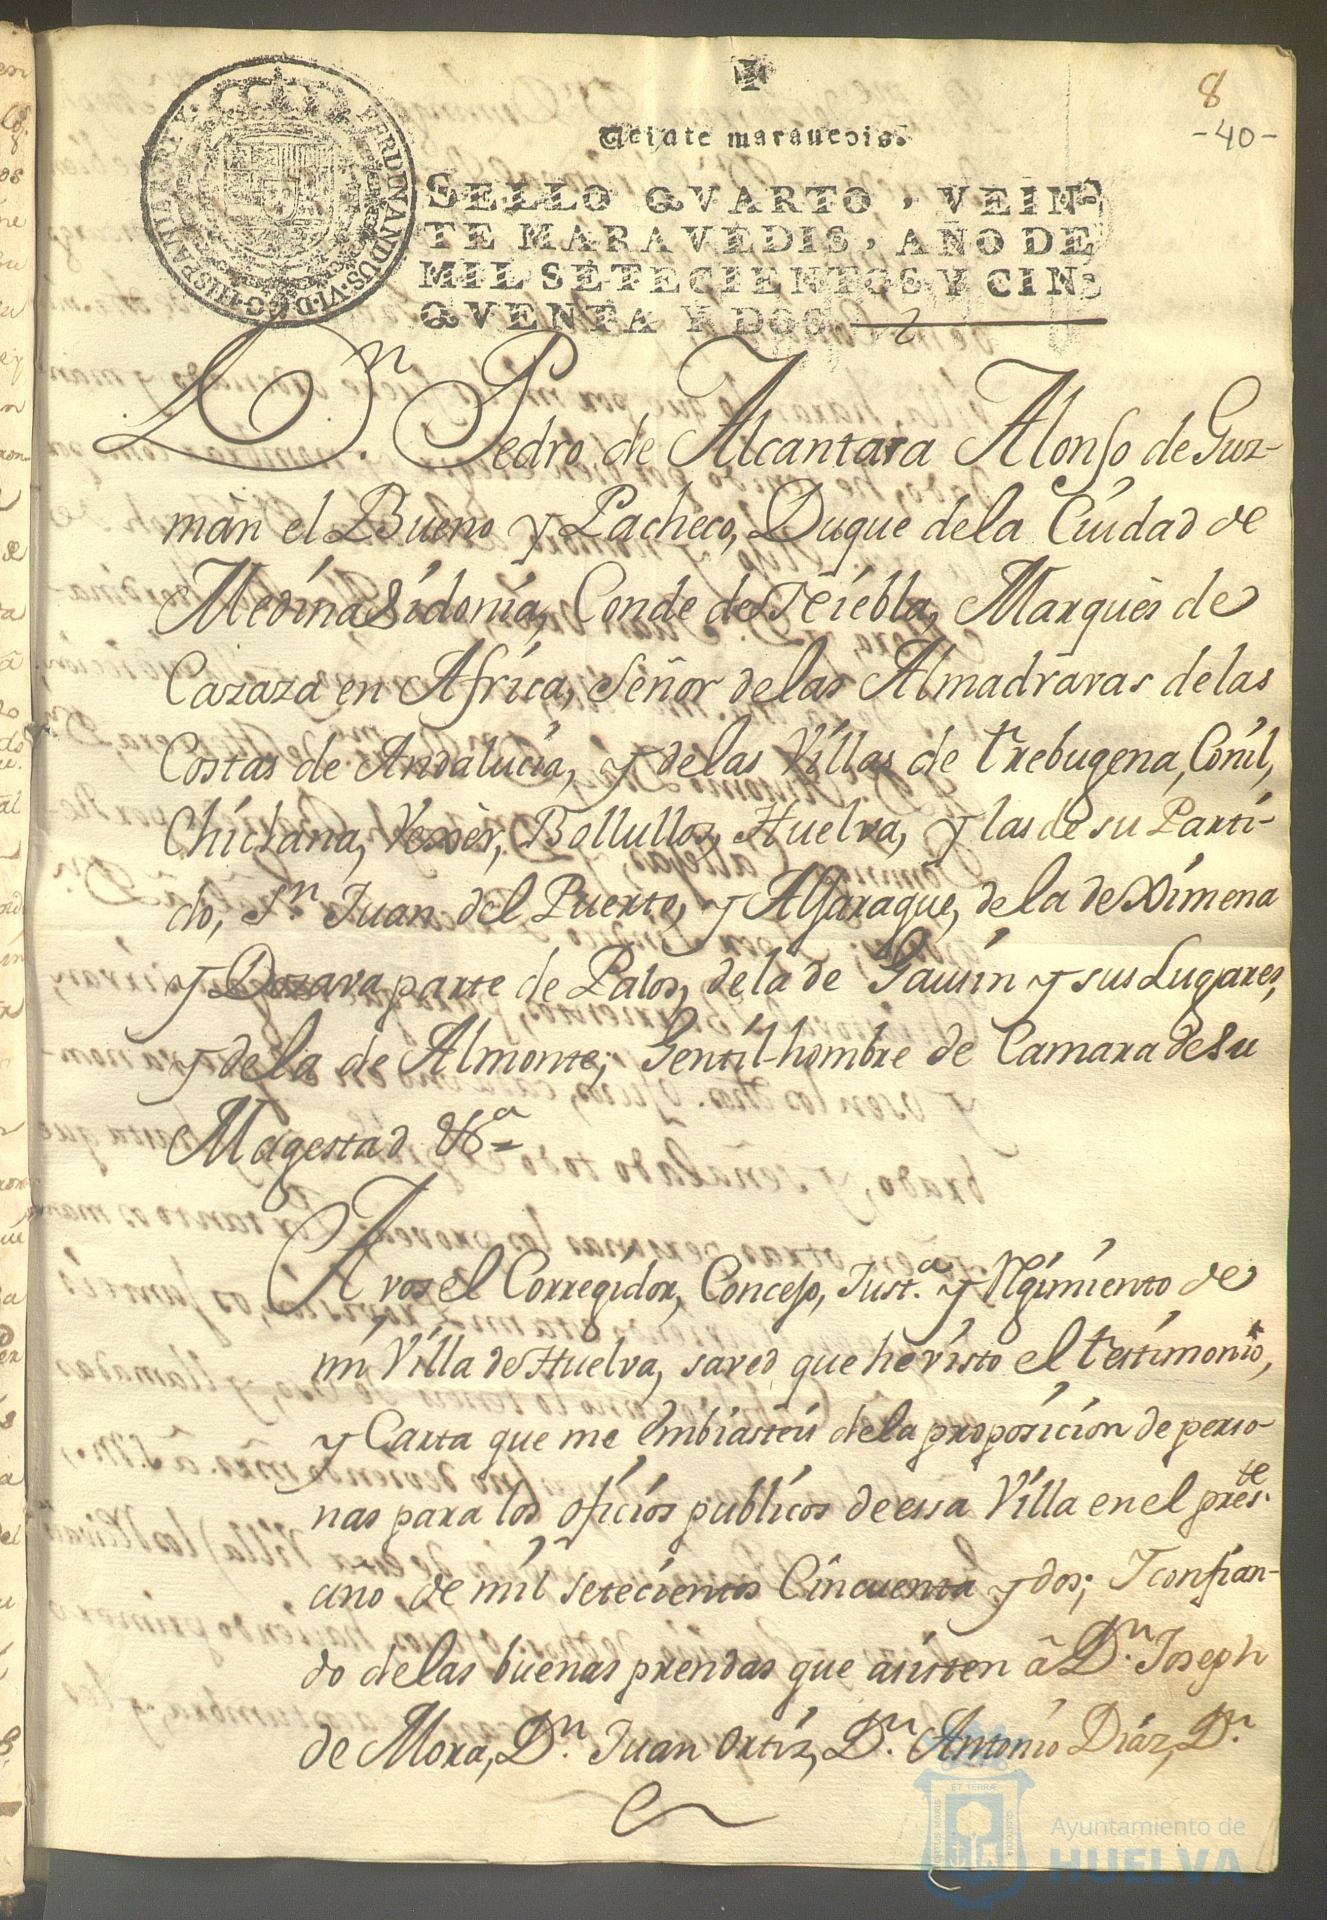 8
-40-
Veinte maravedis.
SELLO QVARTO, VEIN-
TE MARAVEDIS, AÑO DE
MIL SETECIENTOS Y CIN-
QVENTA Y DOS
FERDINANDUS·VI·D·G·HISPANIAR·REX·
Dn. Pedro de Alcantara Alonso de Guz-
mán el Bueno y Pacheco, Duque dela Ciudad de
Medina Sidonia, Conde de Niebla, Marquès de
Cazaza en Africa, Señor delas Almadravas delas
Costas de Andalucia, y delas Villas de trebugena, Conil,
Chiclana, Vexèr, Bollullos, Huelva, y las de su Parti-
do, Sn. Juan del Puerto, y Alfaraque, dela de Ximena
y Dozava parte de Palos, dela de Gausin y sus Lugares,
y dela de Almonte; Gentil-hombre de Camara de Su
Magestad &a
A vos el Corregidor, Concejo, Justa. y Rgimiento de
mi Villa de Huelva, saved que he visto el testimonio,
y Carta que me embiasteis dela proposicion de perso-
nas para los oficios publicos de essa Villa en el preste.
año de mil setecientos Cincuenta y dos; Y confian-
do delas buenas prendas que asisten â Dn. Joseph
de Mora, Dn. Juan Ortiz, Dn. Antonio Diaz, Dn.
Ayuntamiento de
HUELVA